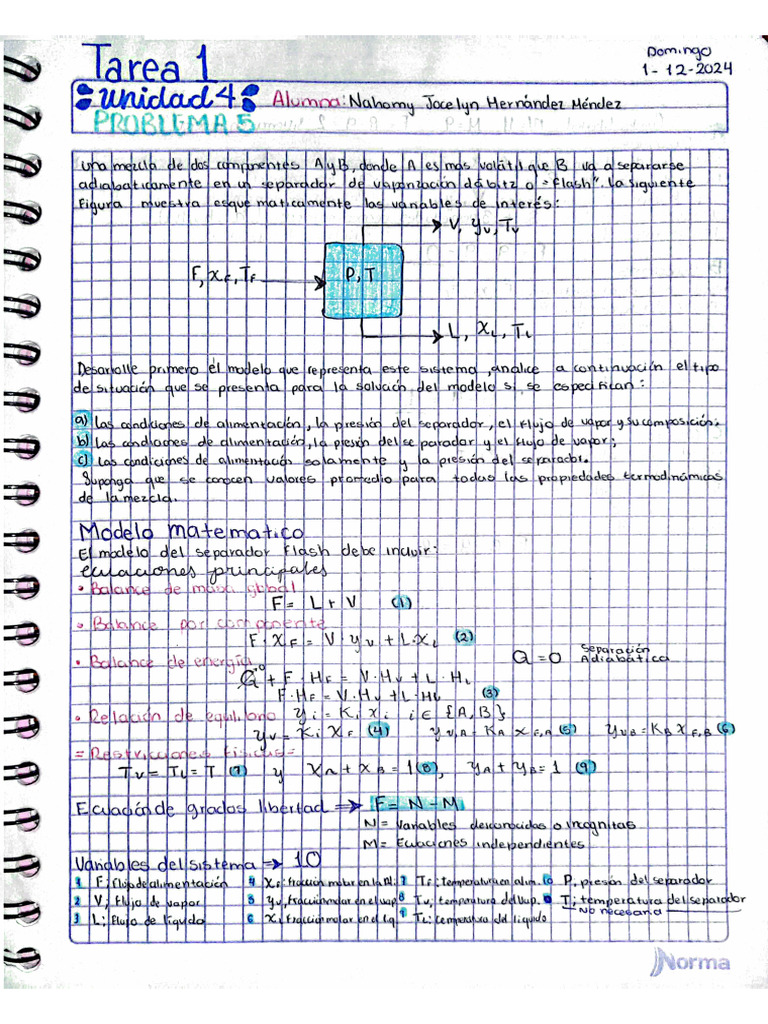 Domingo
Tarea 1
1-12-2024
Unidad 4 Alumna: Nahomy Jocelyn Hernández Méndez
PROBLEMA 5
una mezcla de dos componentes A y B, donde A es mas volátil que B va a separarse
adiabáticamente en un separador de vaporización dábitz o "flash". La siguiente
figura muestra esquematicamente las variables de interés:
V, yv, Tv
F, xF, TF
P, T
L, XL, TL
Desarrolle primero el modelo que representa este sistema, analice a continuación el tipo
de situación que se presenta para la solución del modelo si se especifican:
a) Las condiciones de alimentación, la presión del separador, el flujo de vapor y su composición;
b) Las condiciones de alimentación, la presión del separador y el flujo de vapor;
c) Las condiciones de alimentación solamente y la presión del separador.
Suponga que se conocen valores promedio para todas las propiedades termodinámicas
de la mezcla.
Modelo matematico
El modelo del separador flash debe incluir:
ecuaciones principales
• Balance de masa global
F = L + V (1)
• Balance por componente
F · XF = V · yv + L · XL (2)
• Balance de energía
Q = 0 Separación
Adiabática
Q→0 + F · HF = V · Hv + L · HL
F · HF = V · Hv + L · HL (3)
• Relación de equilibrio yi = Ki xi i ∈ {A, B}
yv = Ki XF (4) yv,A = KA XF,A (5) yv,B = KB XF,B (6)
= Restricciones físicas =
Tv = TL = T (7) y XA + XB = 1 (8), yA + yB = 1 (9)
Ecuación de grados libertad ⇒ F = N - M
N = Variables desconocidas o incognitas
M = Ecuaciones independientes
Variables del sistema → 10
1 F; flujo de alimentación 4 XF; fracción molar en la Al. 7 TF; temperatura en alim. 10 P. presión del separador
2 V; Flujo de vapor 5 yv, Fracción molar en el vap 8 Tv; temperatura del vap. T; temperatura del separador
3 L; Flujo de líquido 6 XL, fracción molar en el Lq 9 TL; temperatura del líquido No necesaria
Norma